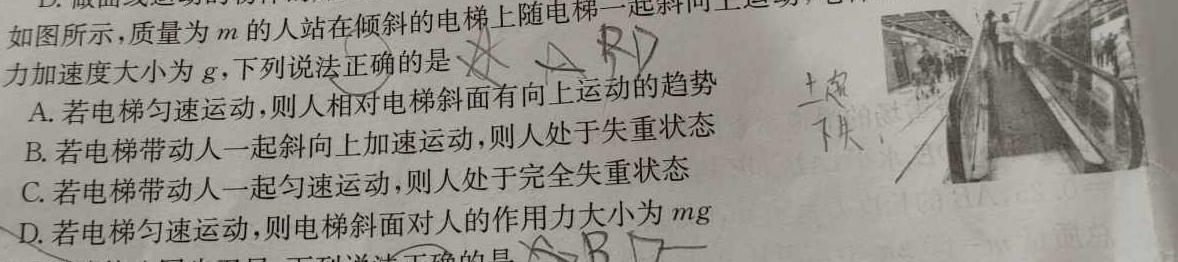 如图所示,质量为 m 的人站在倾斜的电梯上随电梯一起斜向上运动,
力加速度大小为 g,下列说法正确的是 A B D
A. 若电梯匀速运动,则人相对电梯斜面有向上运动的趋势
B. 若电梯带动人一起斜向上加速运动,则人处于失重状态
C. 若电梯带动人一起匀速运动,则人处于完全失重状态
D. 若电梯匀速运动,则电梯斜面对人的作用力大小为 mg
下列说法正确的是 A B D